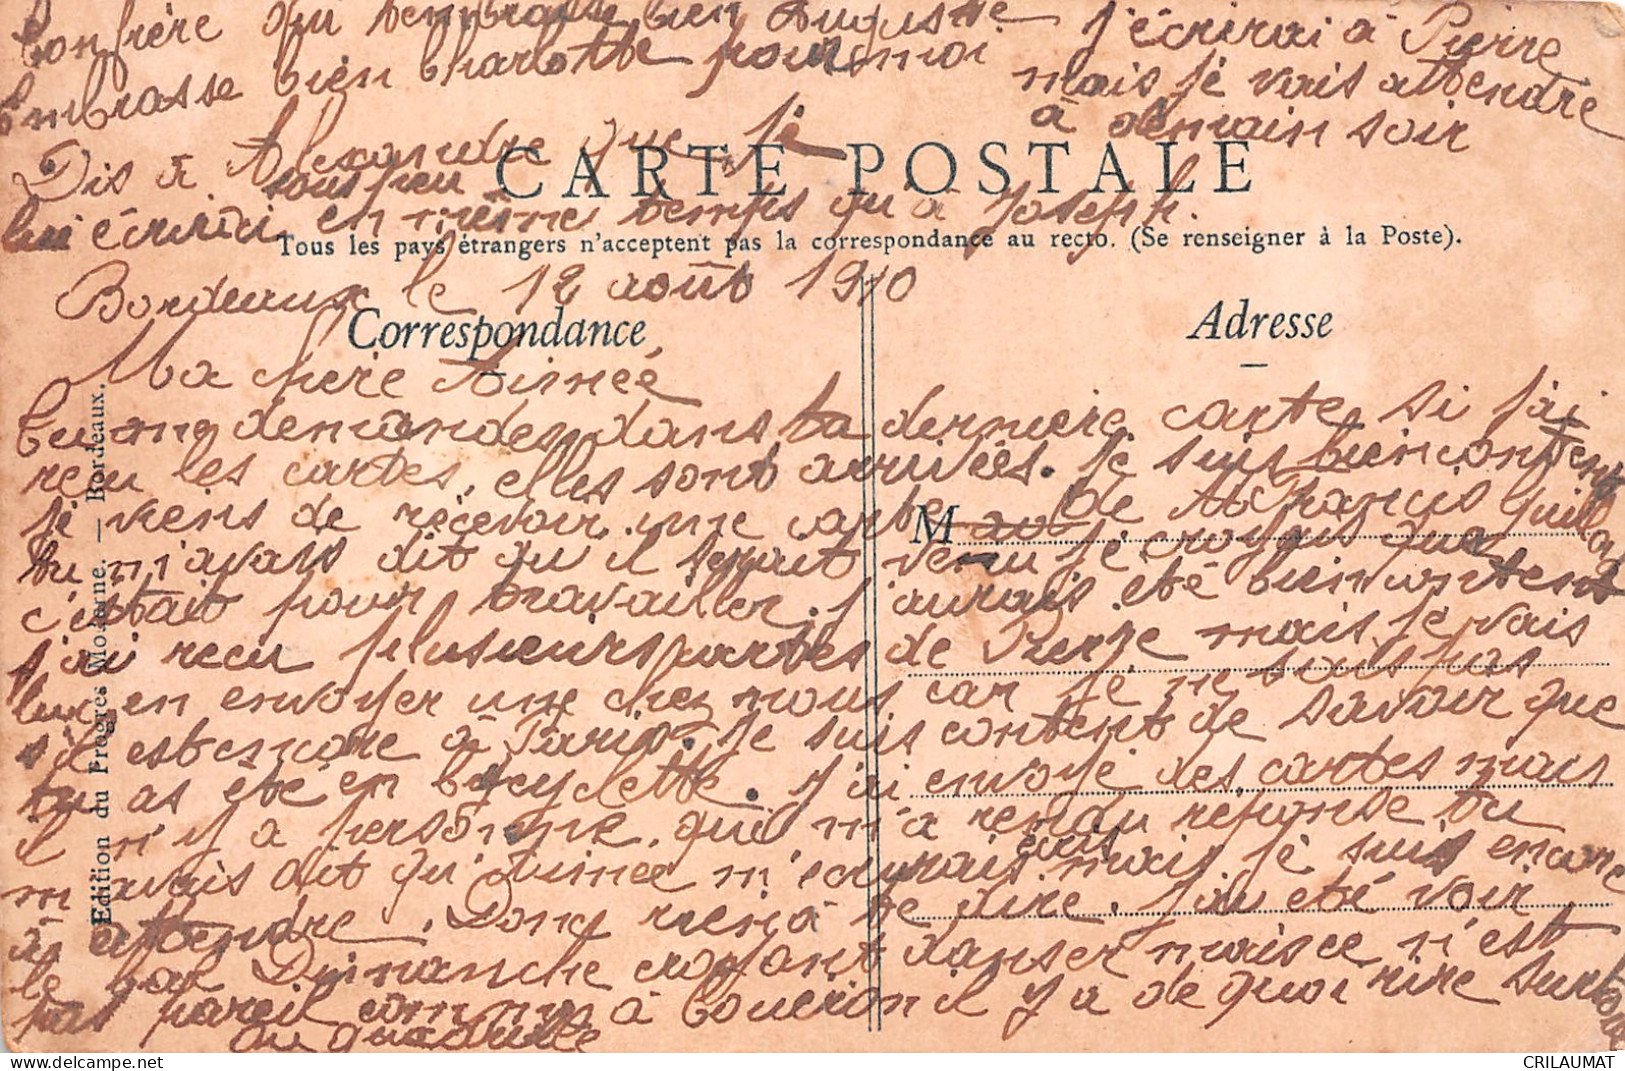 ton frère qui t'embrasse bien Auguste
Embrasse bien Charlotte pour moi
j'écrirai à Pierre
mais je vais attendre
à demain soir
Dis à Alexandre que je
sous peu
lui écrirai en même temps qu'à Joseph.
CARTE POSTALE
Tous les pays étrangers n'acceptent pas la correspondance au recto. (Se renseigner à la Poste).
Bordeaux le 12 août 1910
Correspondance
Adresse
Ma chère Aimée
tu me demandes dans ta dernière carte si j'ai
reçu les cartes, elles sont arrivées. Je suis bien content
je viens de recevoir une carte de M Francis
M
tu m'avais dit qu'il serait venu je croyais que
c'était pour travailler. j'aurais été bien content
j'ai reçu plusieurs cartes de Pierre mais je vais
lui en envoyer une chez nous car je ne sais pas
s'il est encore à Paris. Je suis content de savoir que
tu as été en bicyclette. j'ai envoyé des cartes mais
il n'y a personne qui m'a rendu réponse tu
m'avais dit qu'Aimée m'écrirais mais je suis encore
à attendre. Donc rien à te dire. j'ai été voir
le bal Dimanche croyant danser mais ce n'est
pas pareil comme à Coueron il y a de quoi rire surtout
au quadrille
Edition du Progrès Moderne. — Bordeaux.
CRILAUMAT